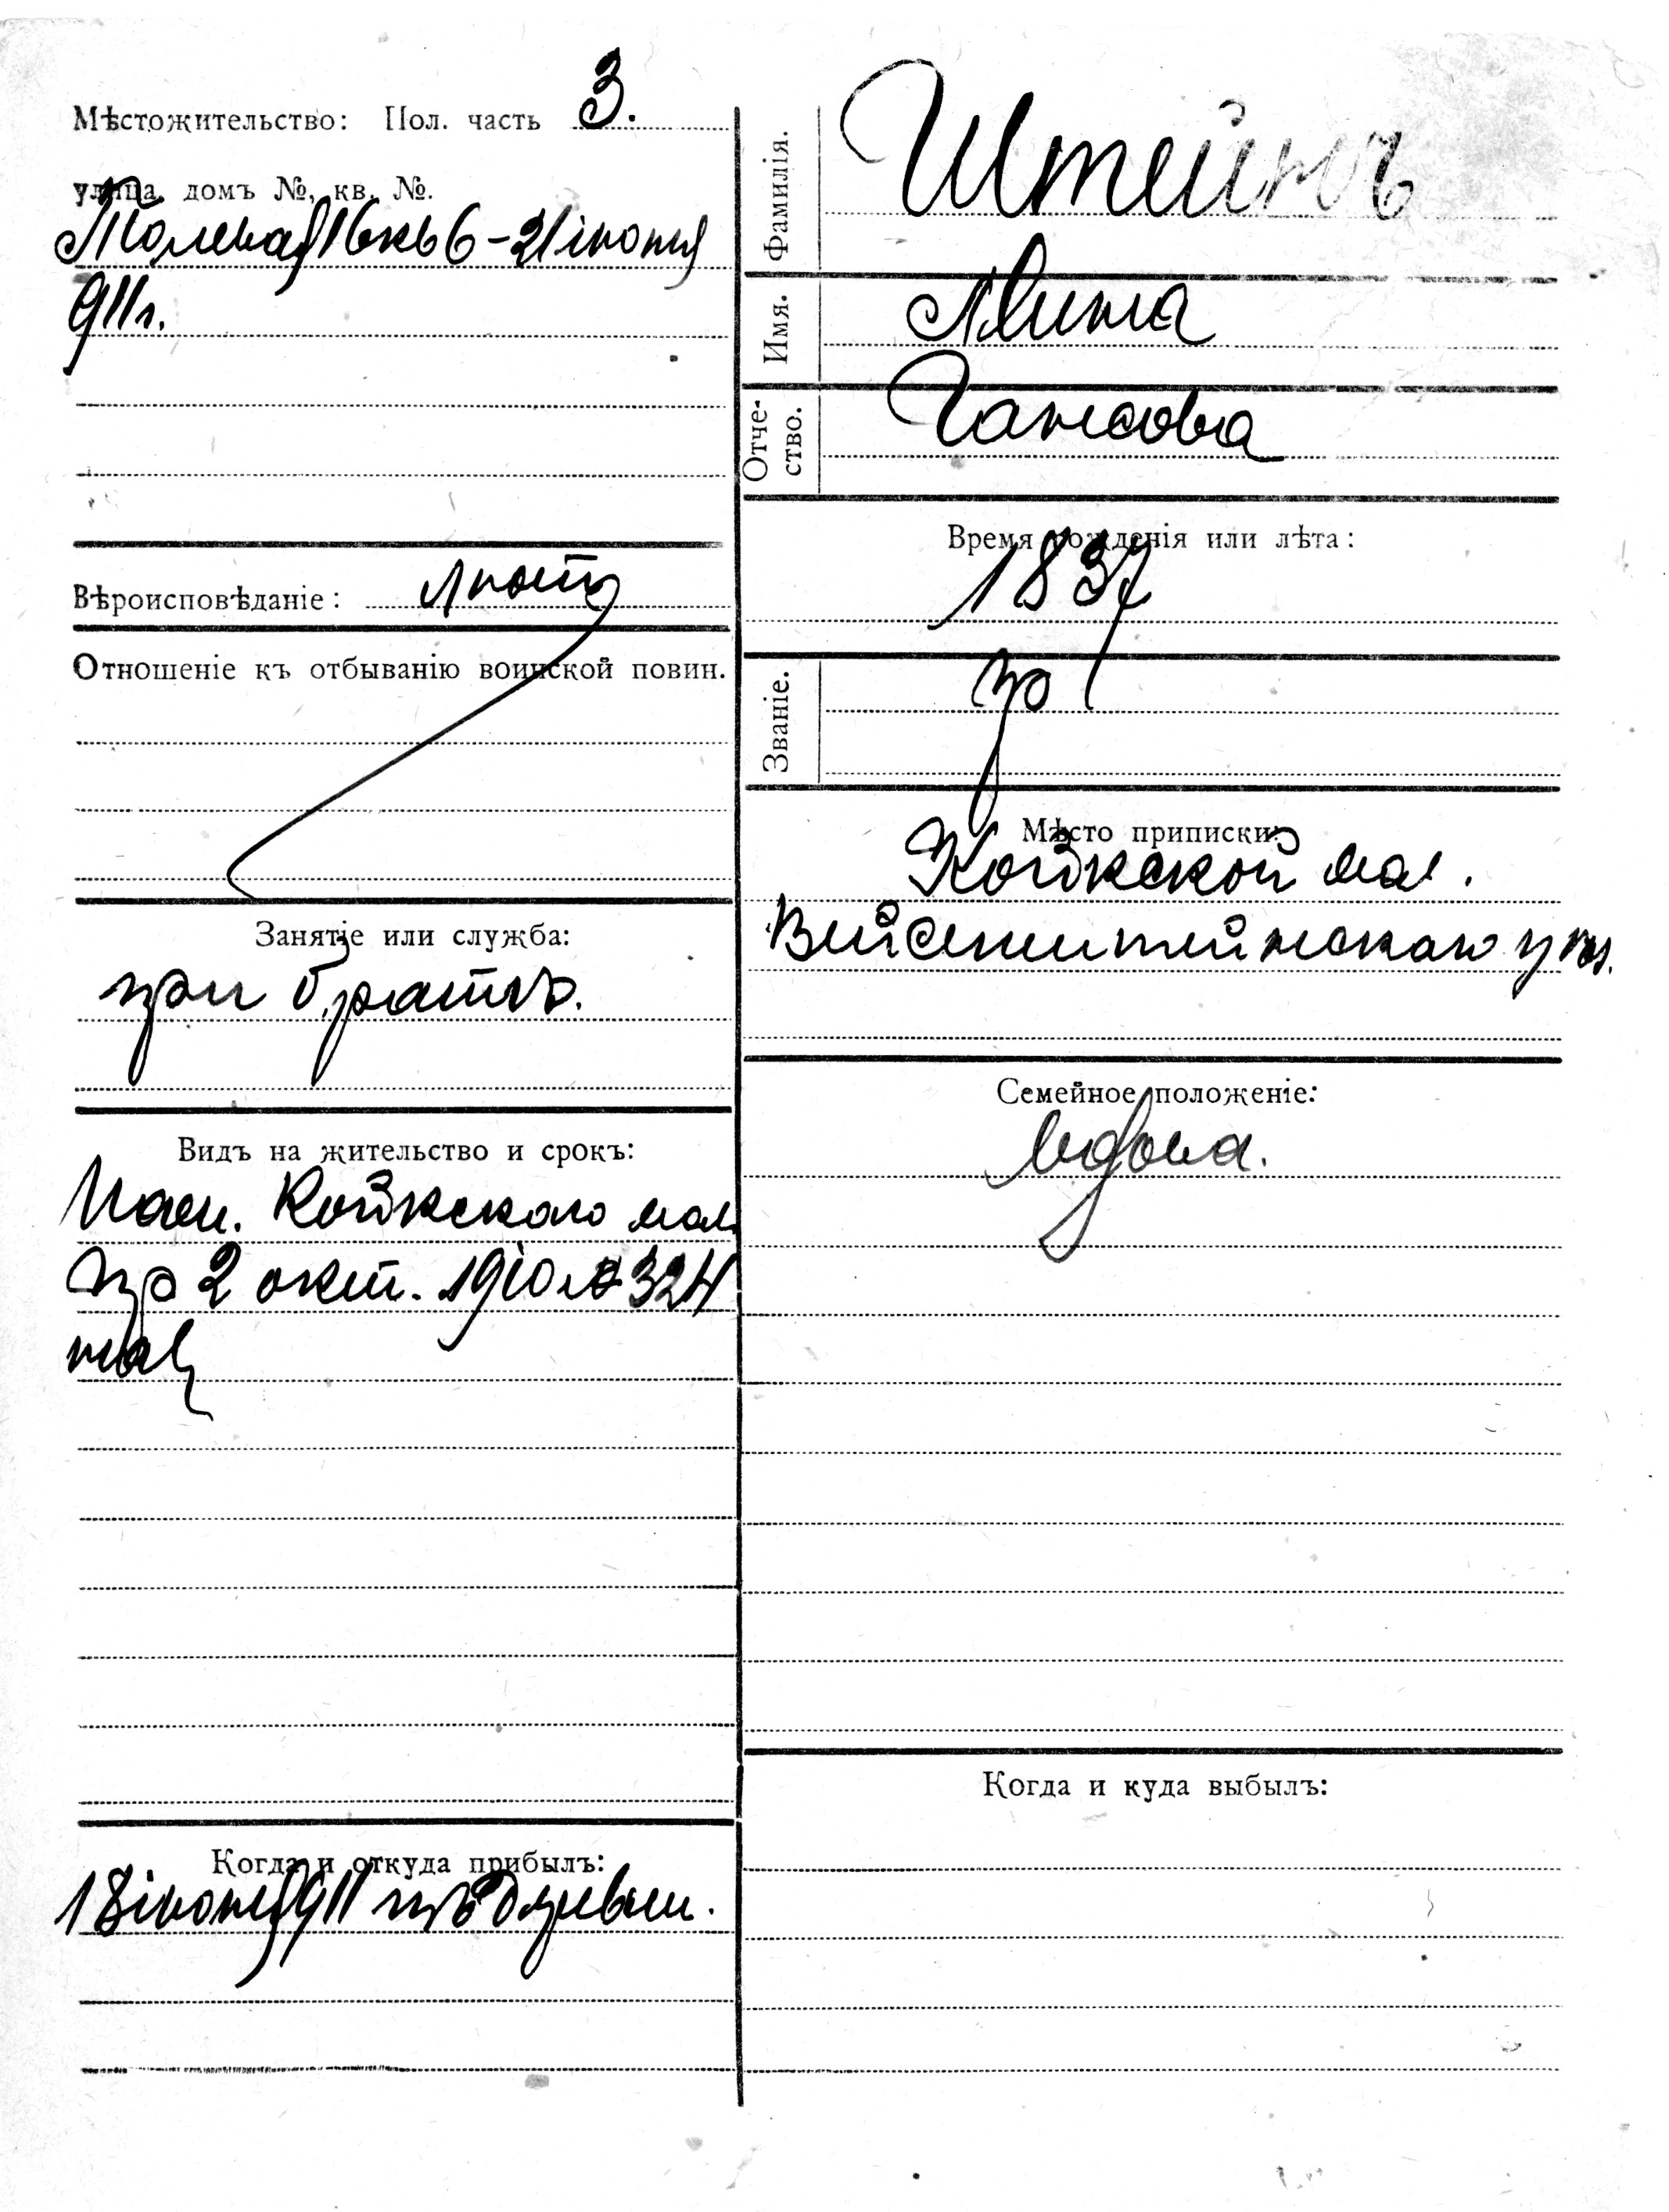 Мѣстожительство: Пол. часть 3.
улица, домъ №, кв. №.
16 кв 6 - 21 іюня
911 г.
Вѣроисповѣданіе: лют
Отношеніе къ отбыванію воинской повин.
Занятіе или служба:
при братѣ.
Видъ на жительство и срокъ:
Пасп. Койкскаго вол.
пр 2 окт. 1910 № 324
Когда и откуда прибылъ:
18 іюня 911 изъ деревни.
Фамилія. Штейнъ
Имя. Мина
Отче-
ство. Гансова
Время рожденія или лѣта:
1837
Званіе. кр
Мѣсто приписки:
Койкской вол.
Вейсенштейнскаго уѣз.
Семейное положеніе:
вдова.
Когда и куда выбылъ: